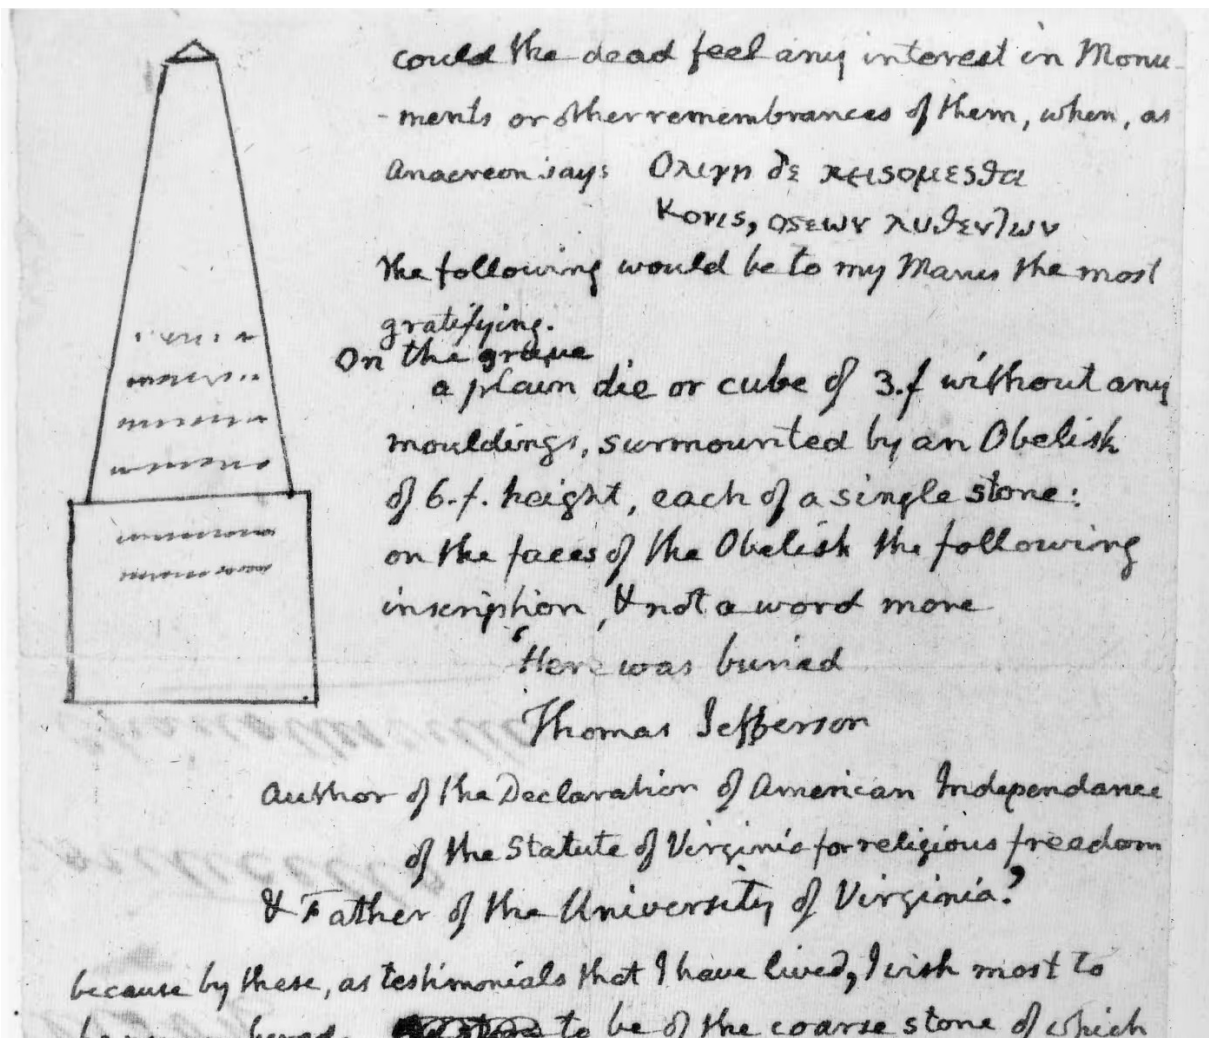 could the dead feel any interest in Monu-
-ments or other remembrances of them, when, as
Anacreon says Ολιγη δε κεισομεσθα
Κονις, οσεων λυθεντων
the following would be to my Manes the most
gratifying.
On the grave
a plain die or cube of 3.f without any
mouldings, surmounted by an Obelisk
of 6.f. height, each of a single stone:
on the faces of the Obelisk the following
inscription, & not a word more
'Here was buried
Thomas Jefferson
Author of the Declaration of American Independance
of the Statute of Virginia for religious freedom
& Father of the University of Virginia.'
because by these, as testimonials that I have lived, I wish most to
be remembered. to be of the coarse stone of which